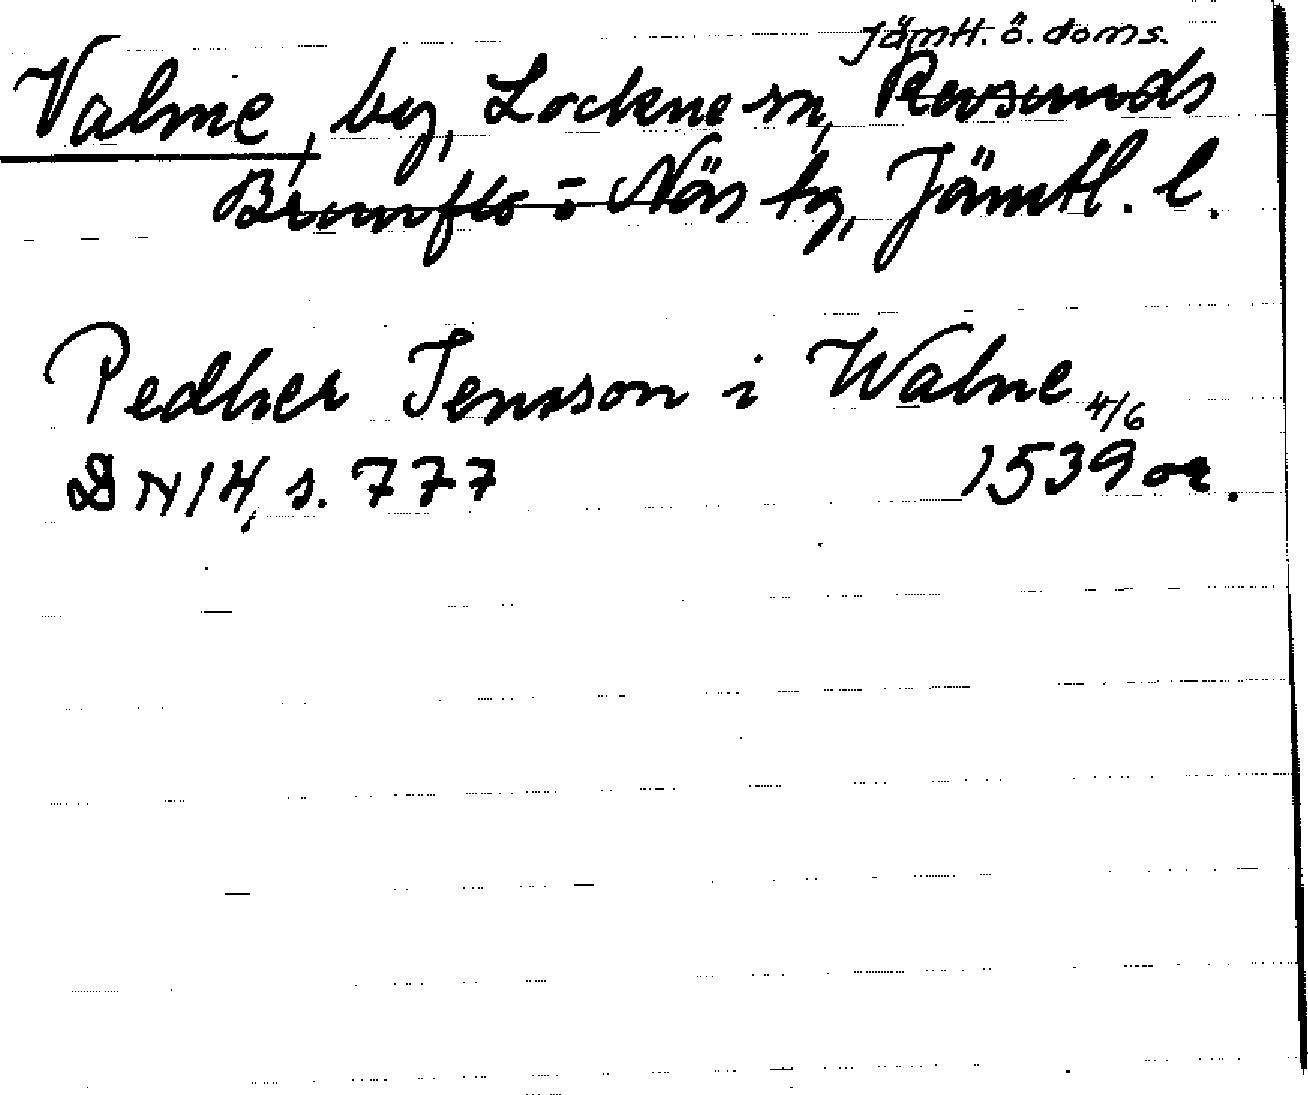 Jämtl. ö. doms.
Valne, by, Lockne sn, Revsunds
Brunflo o Näs tg, Jämtl. l.
Pedher Jensson i Walne 4/6
DN 14, s. 777 1539 or.